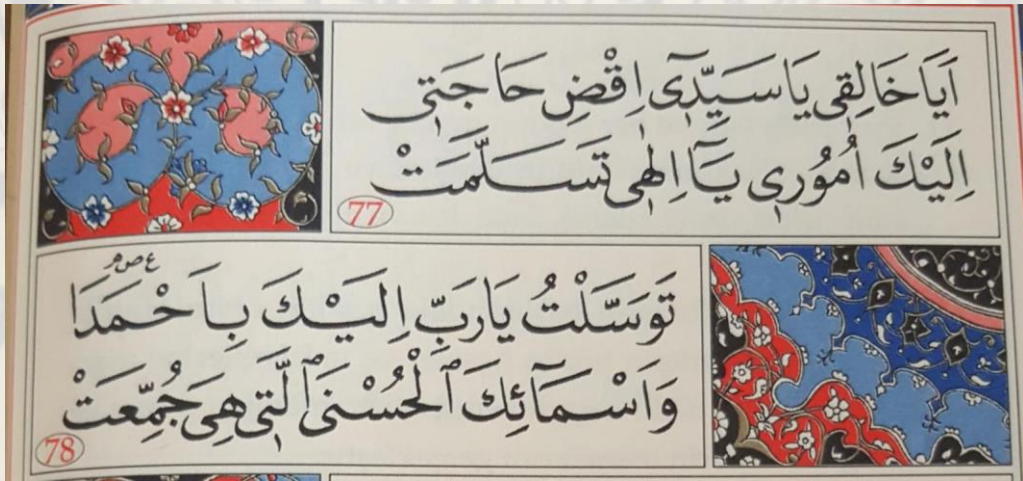 اَيَا خَالِقِى يَا سَيِّدِٓى اِقْضِ حَاجَتِى
اِلَيْكَ اُمُورِى يَٓا اِلٰهِى تَسَلَّمَتْ
77
ع ص م
تَوَسَّلْتُ يَارَبِّ اِلَيْكَ بِاَحْمَدَا
وَاَسْمَٓائِكَ ٱلْحُسْنَى ٱلَّتِى هِىَ جُمِّعَتْ
78